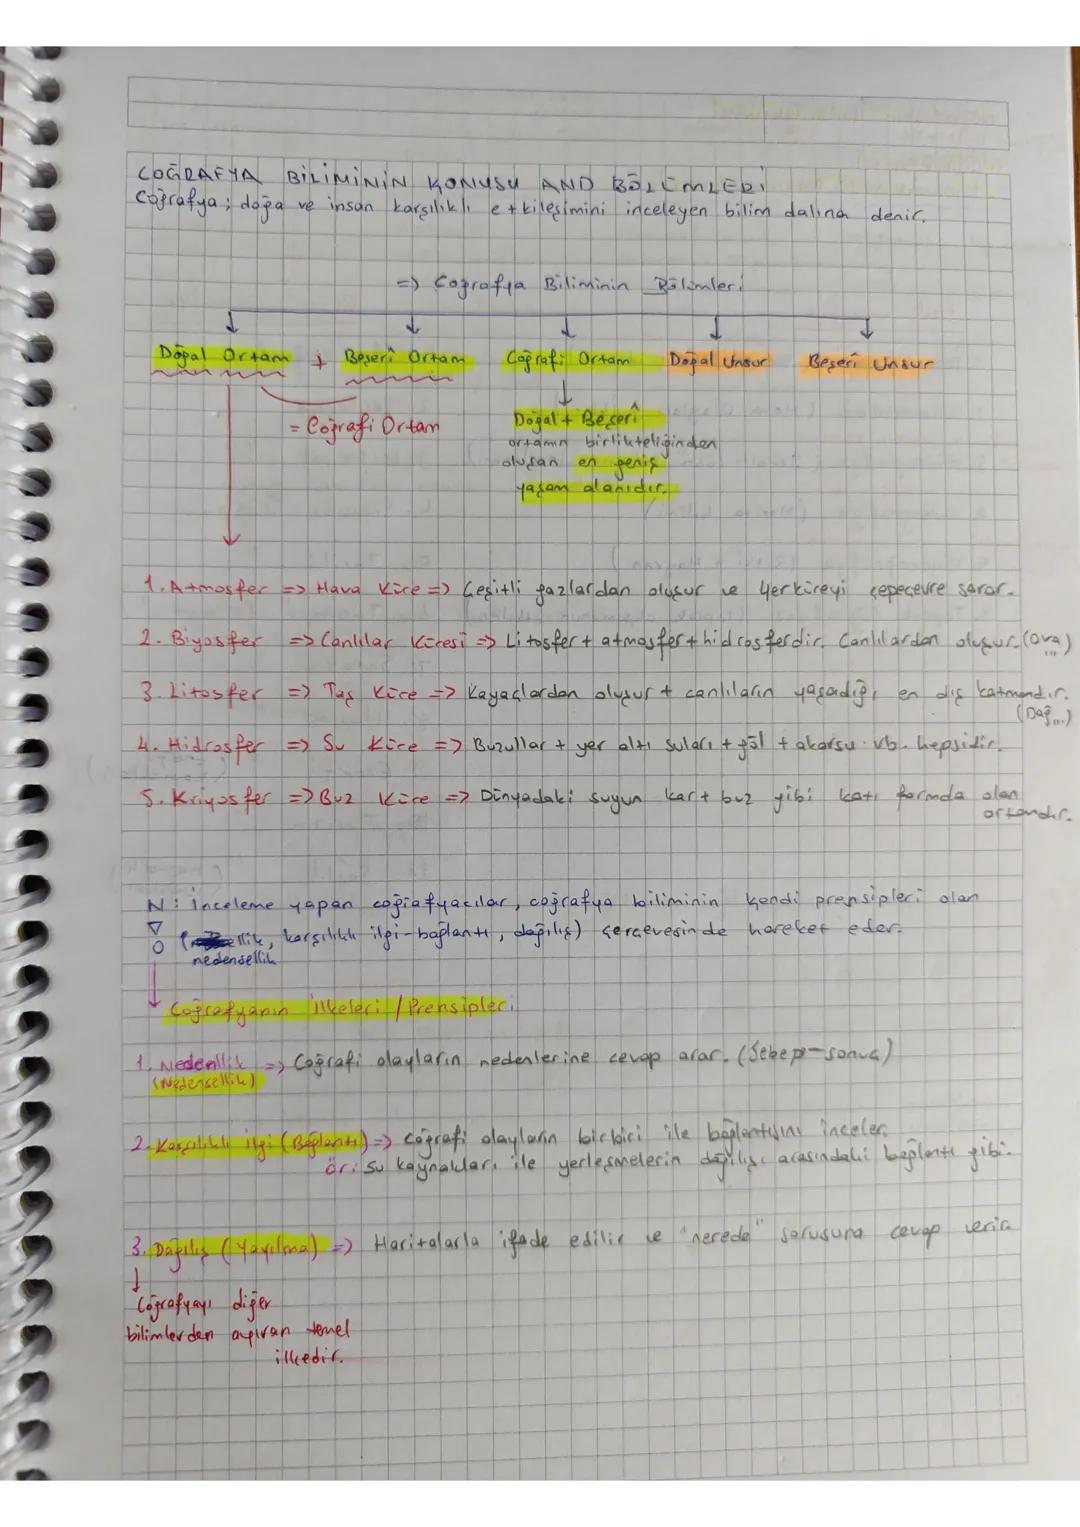 COĞRAFYA BİLİMİNİN KONUSU AND BÖLÜMLERİ
Coğrafya; doğa ve insan karşılıklı etkileşimini inceleyen bilim dalına denir.
=> Coğrafya Biliminin Bölümleri
Doğal Ortam + Beşerî Ortam Coğrafi Ortam Doğal Unsur Beşerî Unsur
= Coğrafi Ortam
Doğal + Beşerî
ortamın birlikteliğinden
oluşan en geniş
yaşam alanıdır.
1. Atmosfer => Hava Küre => Çeşitli gazlardan oluşur ve Yerküreyi çepeçevre sarar.
2. Biyosfer => Canlılar Küresi => Litosfer + atmosfer + hidrosferdir. Canlılardan oluşur. (Ova)
...
3. Litosfer => Taş Küre => Kayaçlardan oluşur + canlıların yaşadığı en dış katmandır.
(Dağ...)
4. Hidrosfer => Su Küre => Buzullar + yer altı suları + göl + akarsu vb. hepsidir.
5. Kriyosfer => Buz Küre => Dünyadaki suyun kar + buz gibi katı formda olan
ortamdır.
N: İnceleme yapan coğrafyacılar, coğrafya biliminin kendi prensipleri olan
O (ellik, karşılıklı ilgi-bağlantı, dağılış) çerçevesinde hareket eder.
nedensellik
Coğrafyanın İlkeleri / Prensipleri
1. Nedenllik => Coğrafi olayların nedenlerine cevap arar. (Sebep-sonuç)
(Nedensellik)
2. Karşılıklı ilgi (Bağlantı) => Coğrafi olayların birbiri ile bağlantısını inceler.
ör: Su kaynakları ile yerleşmelerin dağılışı arasındaki bağlantı gibi.
3. Dağılış (Yayılma) => Haritalarla ifade edilir ve "nerede" sorusuna cevap verir.
Coğrafyayı diğer
bilimlerden ayıran temel
ilkedir.